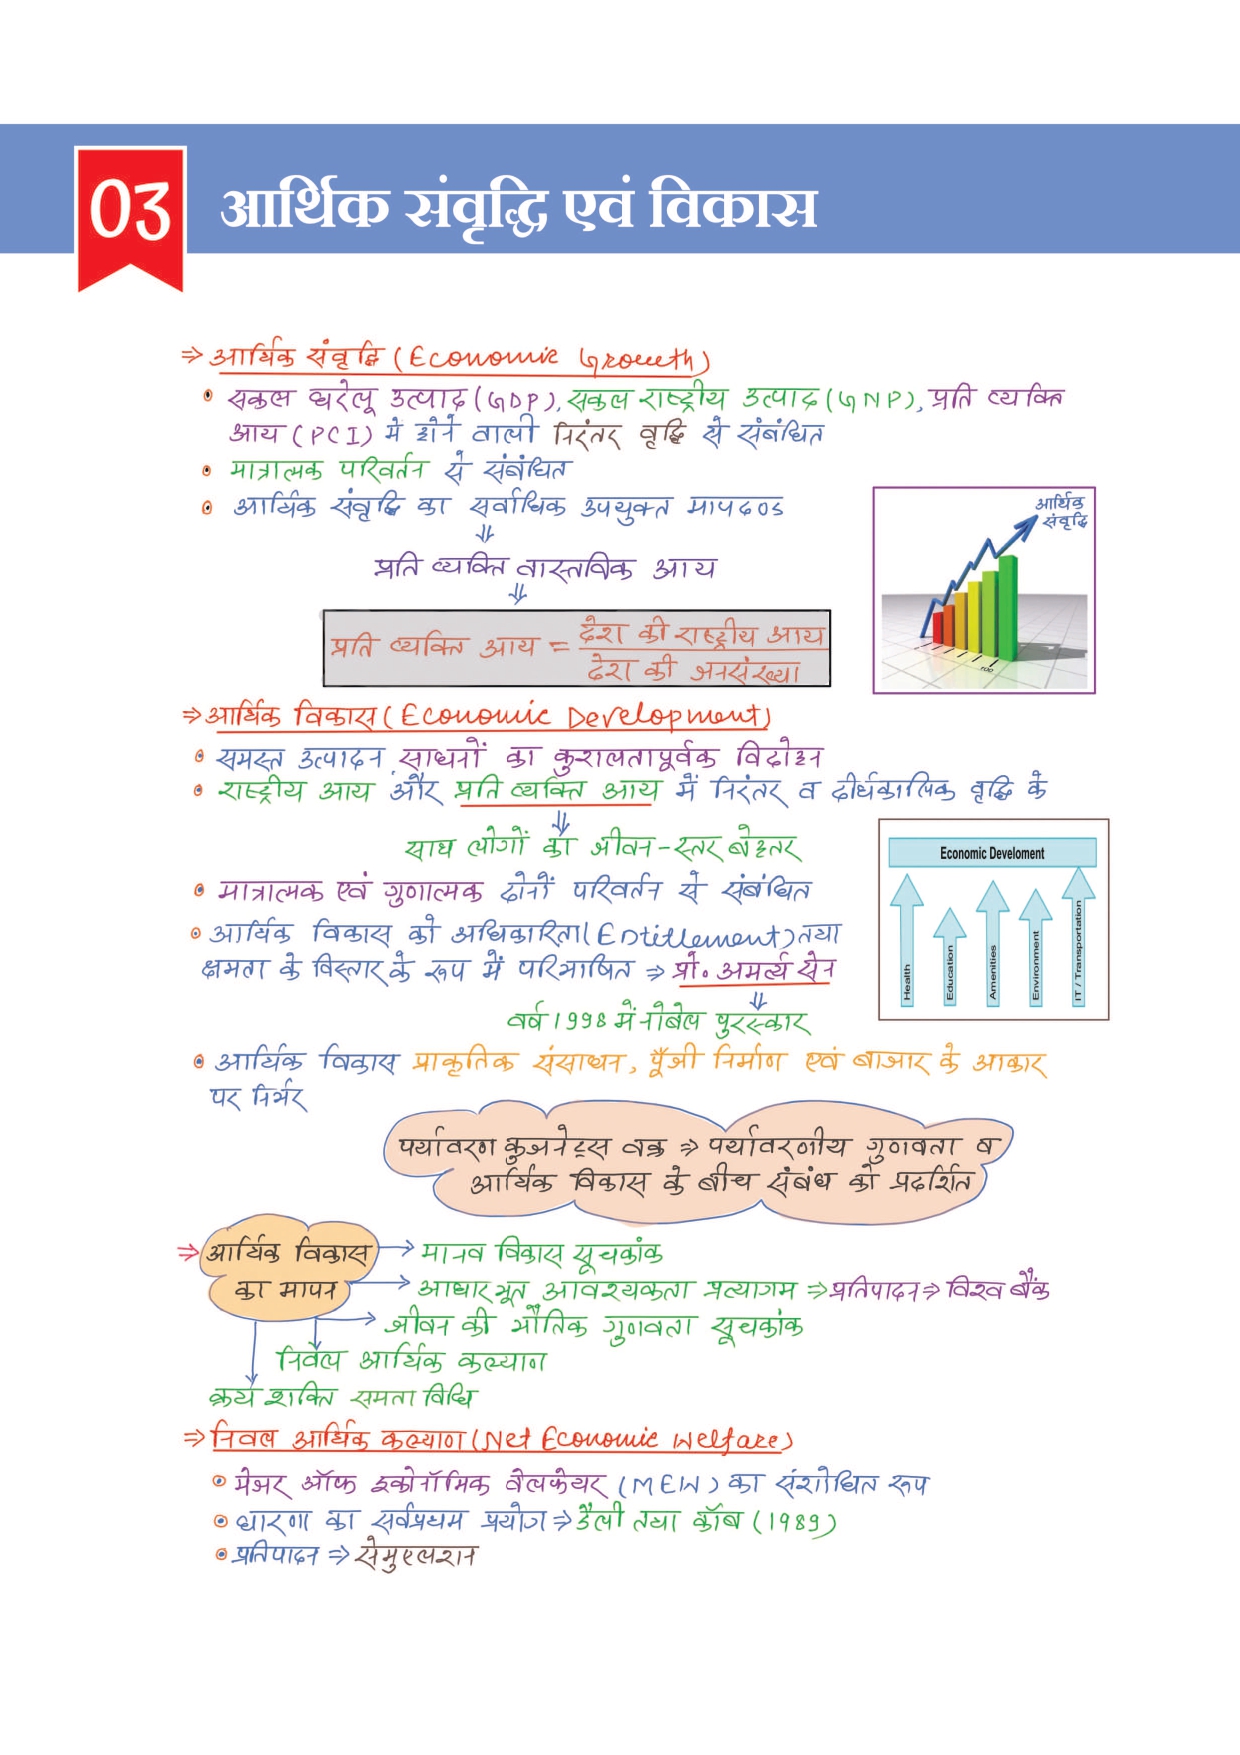 03
आर्थिक संवृद्धि एवं विकास
⇒ आर्थिक संवृद्धि (Economic Growth)
• सकल घरेलू उत्पाद (GDP), सकल राष्ट्रीय उत्पाद (GNP), प्रति व्यक्ति
आय (PCI) में होने वाली निरंतर वृद्धि से संबंधित
• मात्रात्मक परिवर्तन से संबंधित
• आर्थिक संवृद्धि का सर्वाधिक उपयुक्त मापदण्ड
⇓
प्रति व्यक्ति वास्तविक आय
⇓
प्रति व्यक्ति आय = देश की राष्ट्रीय आय
देश की जनसंख्या
आर्थिक
संवृद्धि
100
⇒ आर्थिक विकास (Economic Development)
• समस्त उत्पादन साधनों का कुशलतापूर्वक विदोहन
• राष्ट्रीय आय और प्रति व्यक्ति आय में निरंतर व दीर्घकालिक वृद्धि के
⇓
साथ लोगों का जीवन-स्तर बेहतर
• मात्रात्मक एवं गुणात्मक दोनों परिवर्तन से संबंधित
• आर्थिक विकास को अधिकारिता (Entitlement) तथा
क्षमता के विस्तार के रूप में परिभाषित ⇒ प्रो. अमर्त्य सेन
⇓
वर्ष 1998 में नोबेल पुरस्कार
Economic Develoment
Health
Education
Amenities
Environment
IT / Transportation
• आर्थिक विकास प्राकृतिक संसाधन, पूँजी निर्माण एवं बाजार के आकार
पर निर्भर
पर्यावरण कुजनेट्स वक्र ⇒ पर्यावरणीय गुणवता व
आर्थिक विकास के बीच संबंध को प्रदर्शित
⇒ आर्थिक विकास → मानव विकास सूचकांक
का मापन → आधारभूत आवश्यकता प्रत्यागम ⇒ प्रतिपादन ⇒ विश्व बैंक
→ जीवन की भौतिक गुणवता सूचकांक
निवल आर्थिक कल्याण
क्रय शक्ति समता विधि
⇒ निवल आर्थिक कल्याण (Net Economic Welfare)
• मेजर ऑफ इकोनॉमिक वेलफेयर (MEW) का संशोधित रूप
• धारणा का सर्वप्रथम प्रयोग ⇒ डैली तथा कॉब (1989)
• प्रतिपादन ⇒ सेमुएलशन